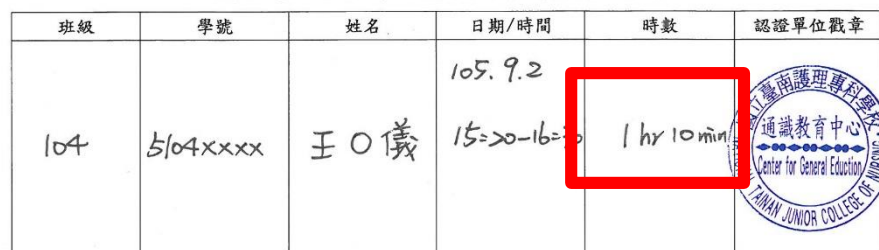 班級 學號 姓名 日期/時間 時數 認證單位戳章
105.9.2
104 5104xxxx 王○儀 15:20-16:30 1 hr 10 min
國立臺南護理專科學校
通識教育中心
Center for General Eduction
NATIONAL TAINAN JUNIOR COLLEGE OF NURSING